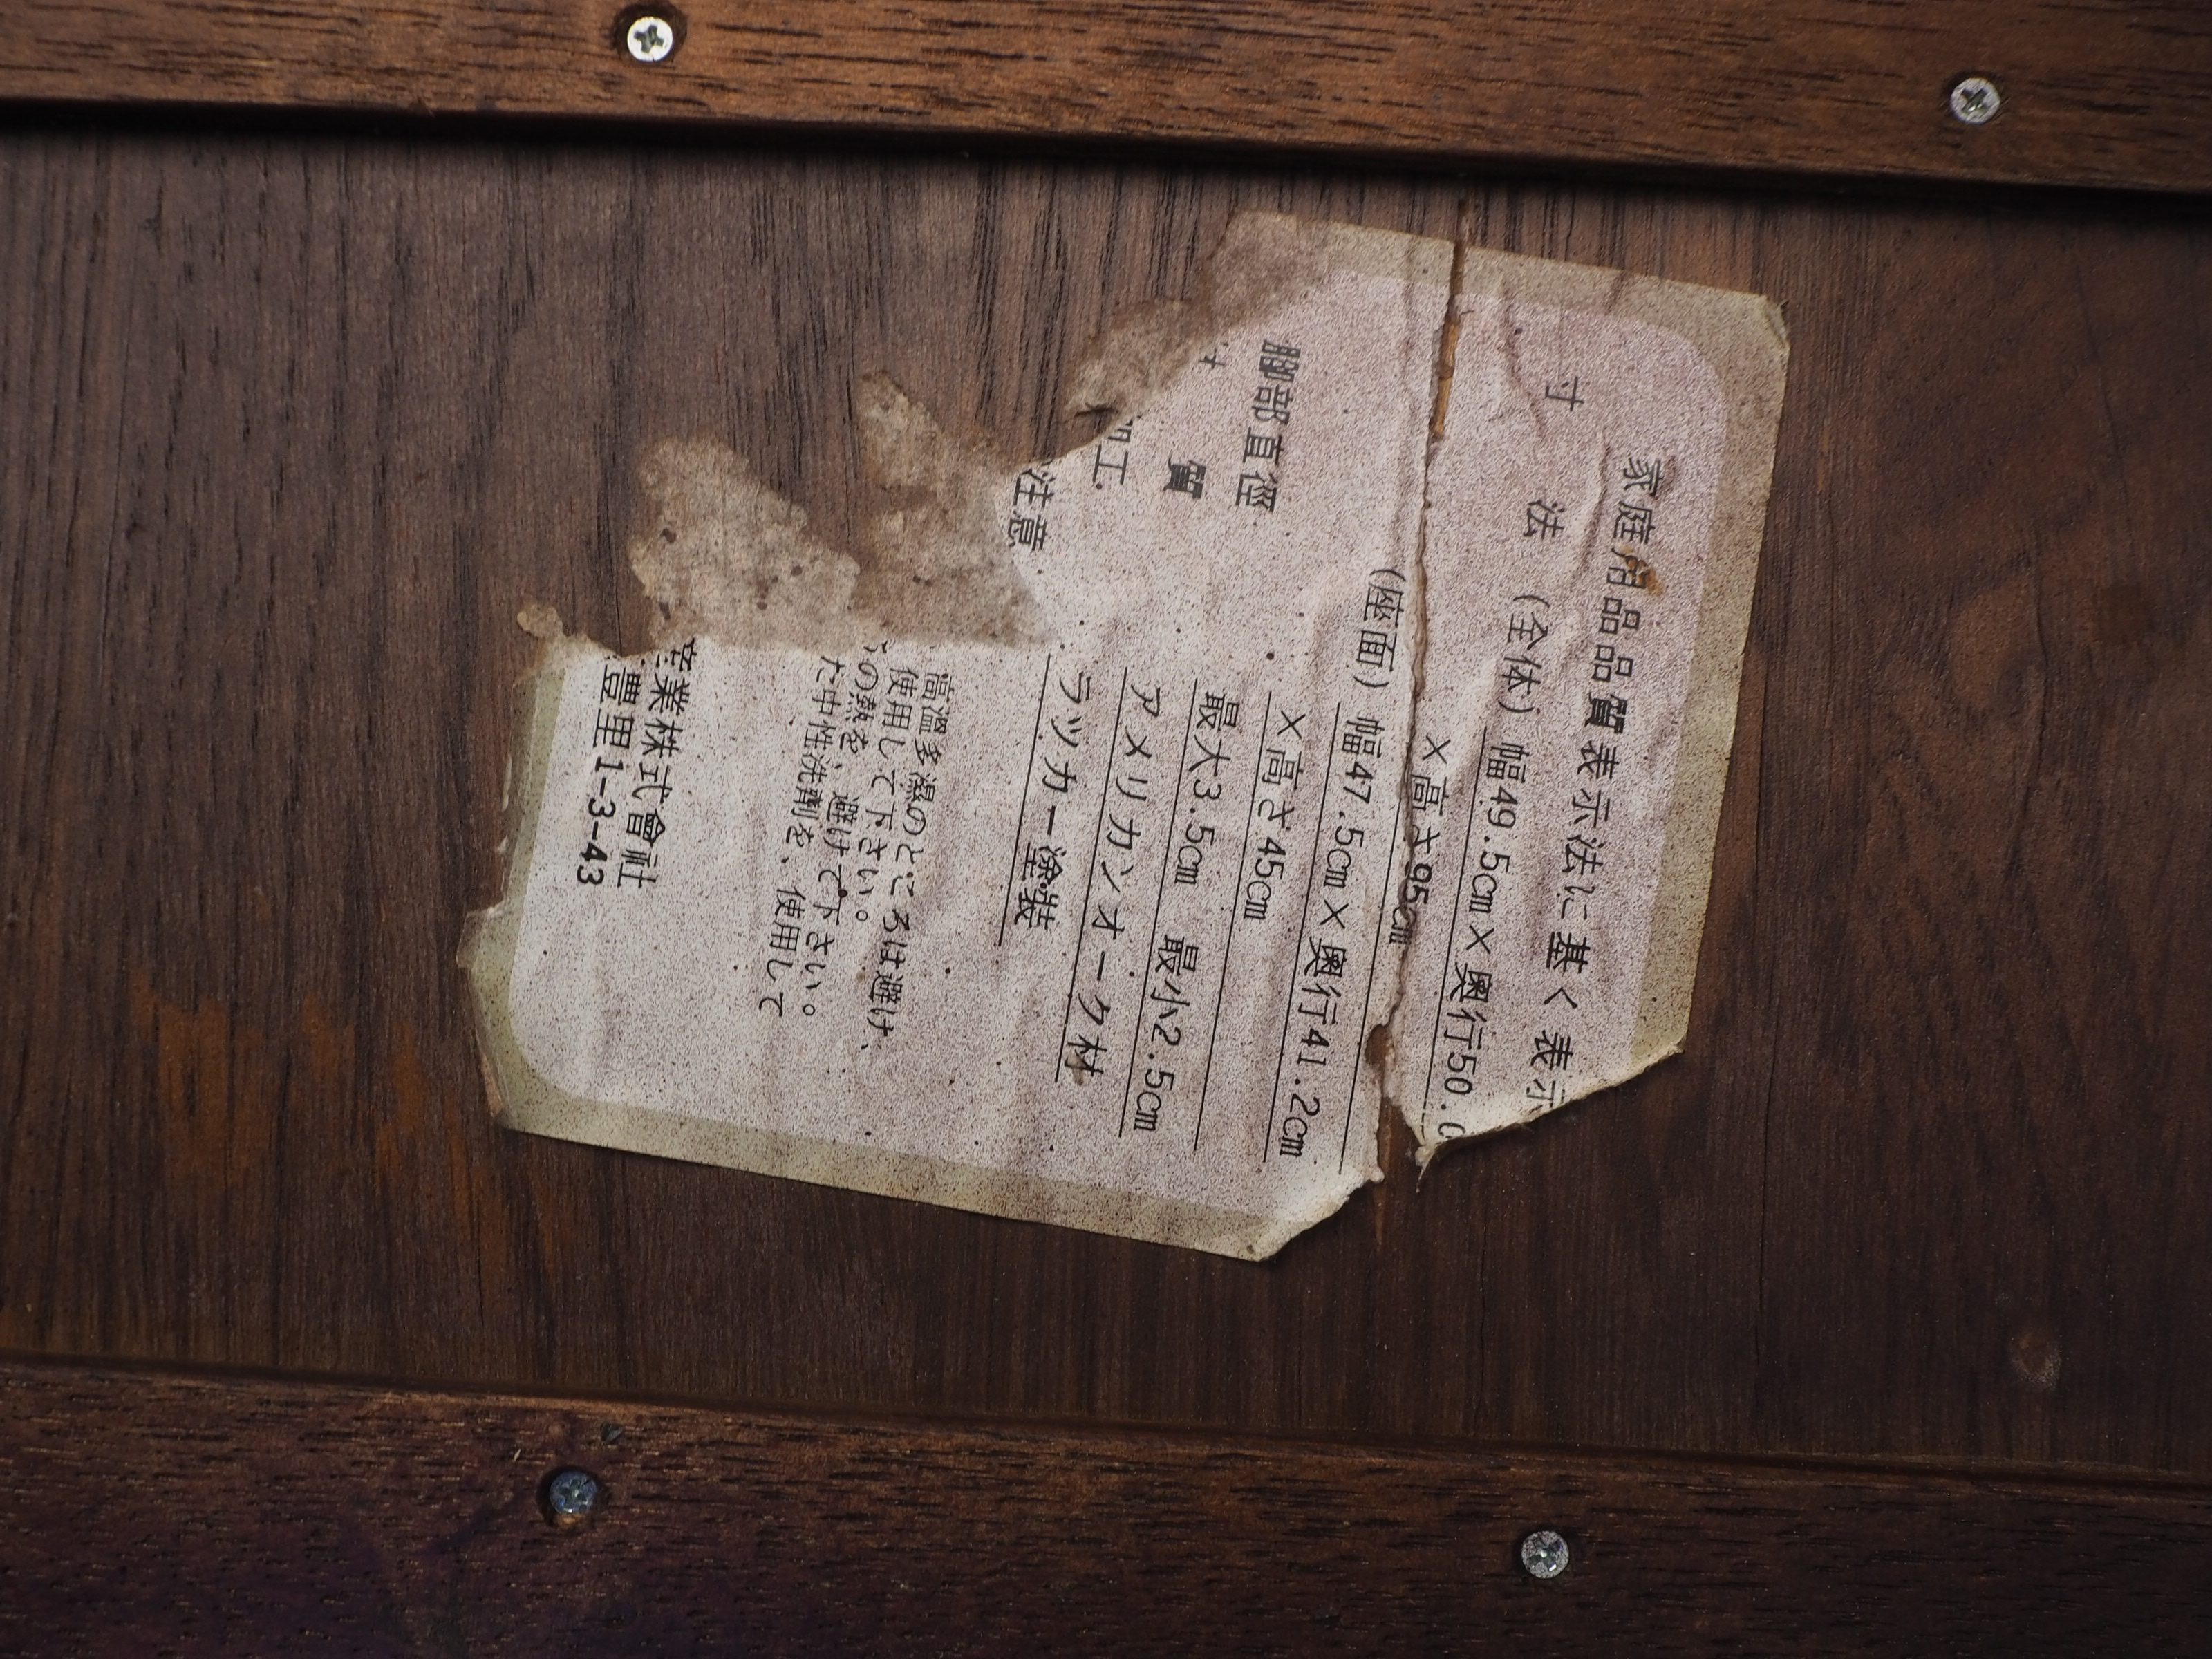 家庭用品品質表示法に基く表示
寸法 (全体) 幅49.5cm×奥行50.0
×高さ95cm
(座面) 幅47.5cm×奥行41.2cm
×高さ45cm
脚部直径 最大3.5cm 最小2.5cm
質 アメリカンオーク材
工 ラッカー塗装
注意
高温多湿のところは避け、
使用して下さい。
の熱を、避けて下さい。
た中性洗剤を、使用して
業株式會社
豊里1-3-43